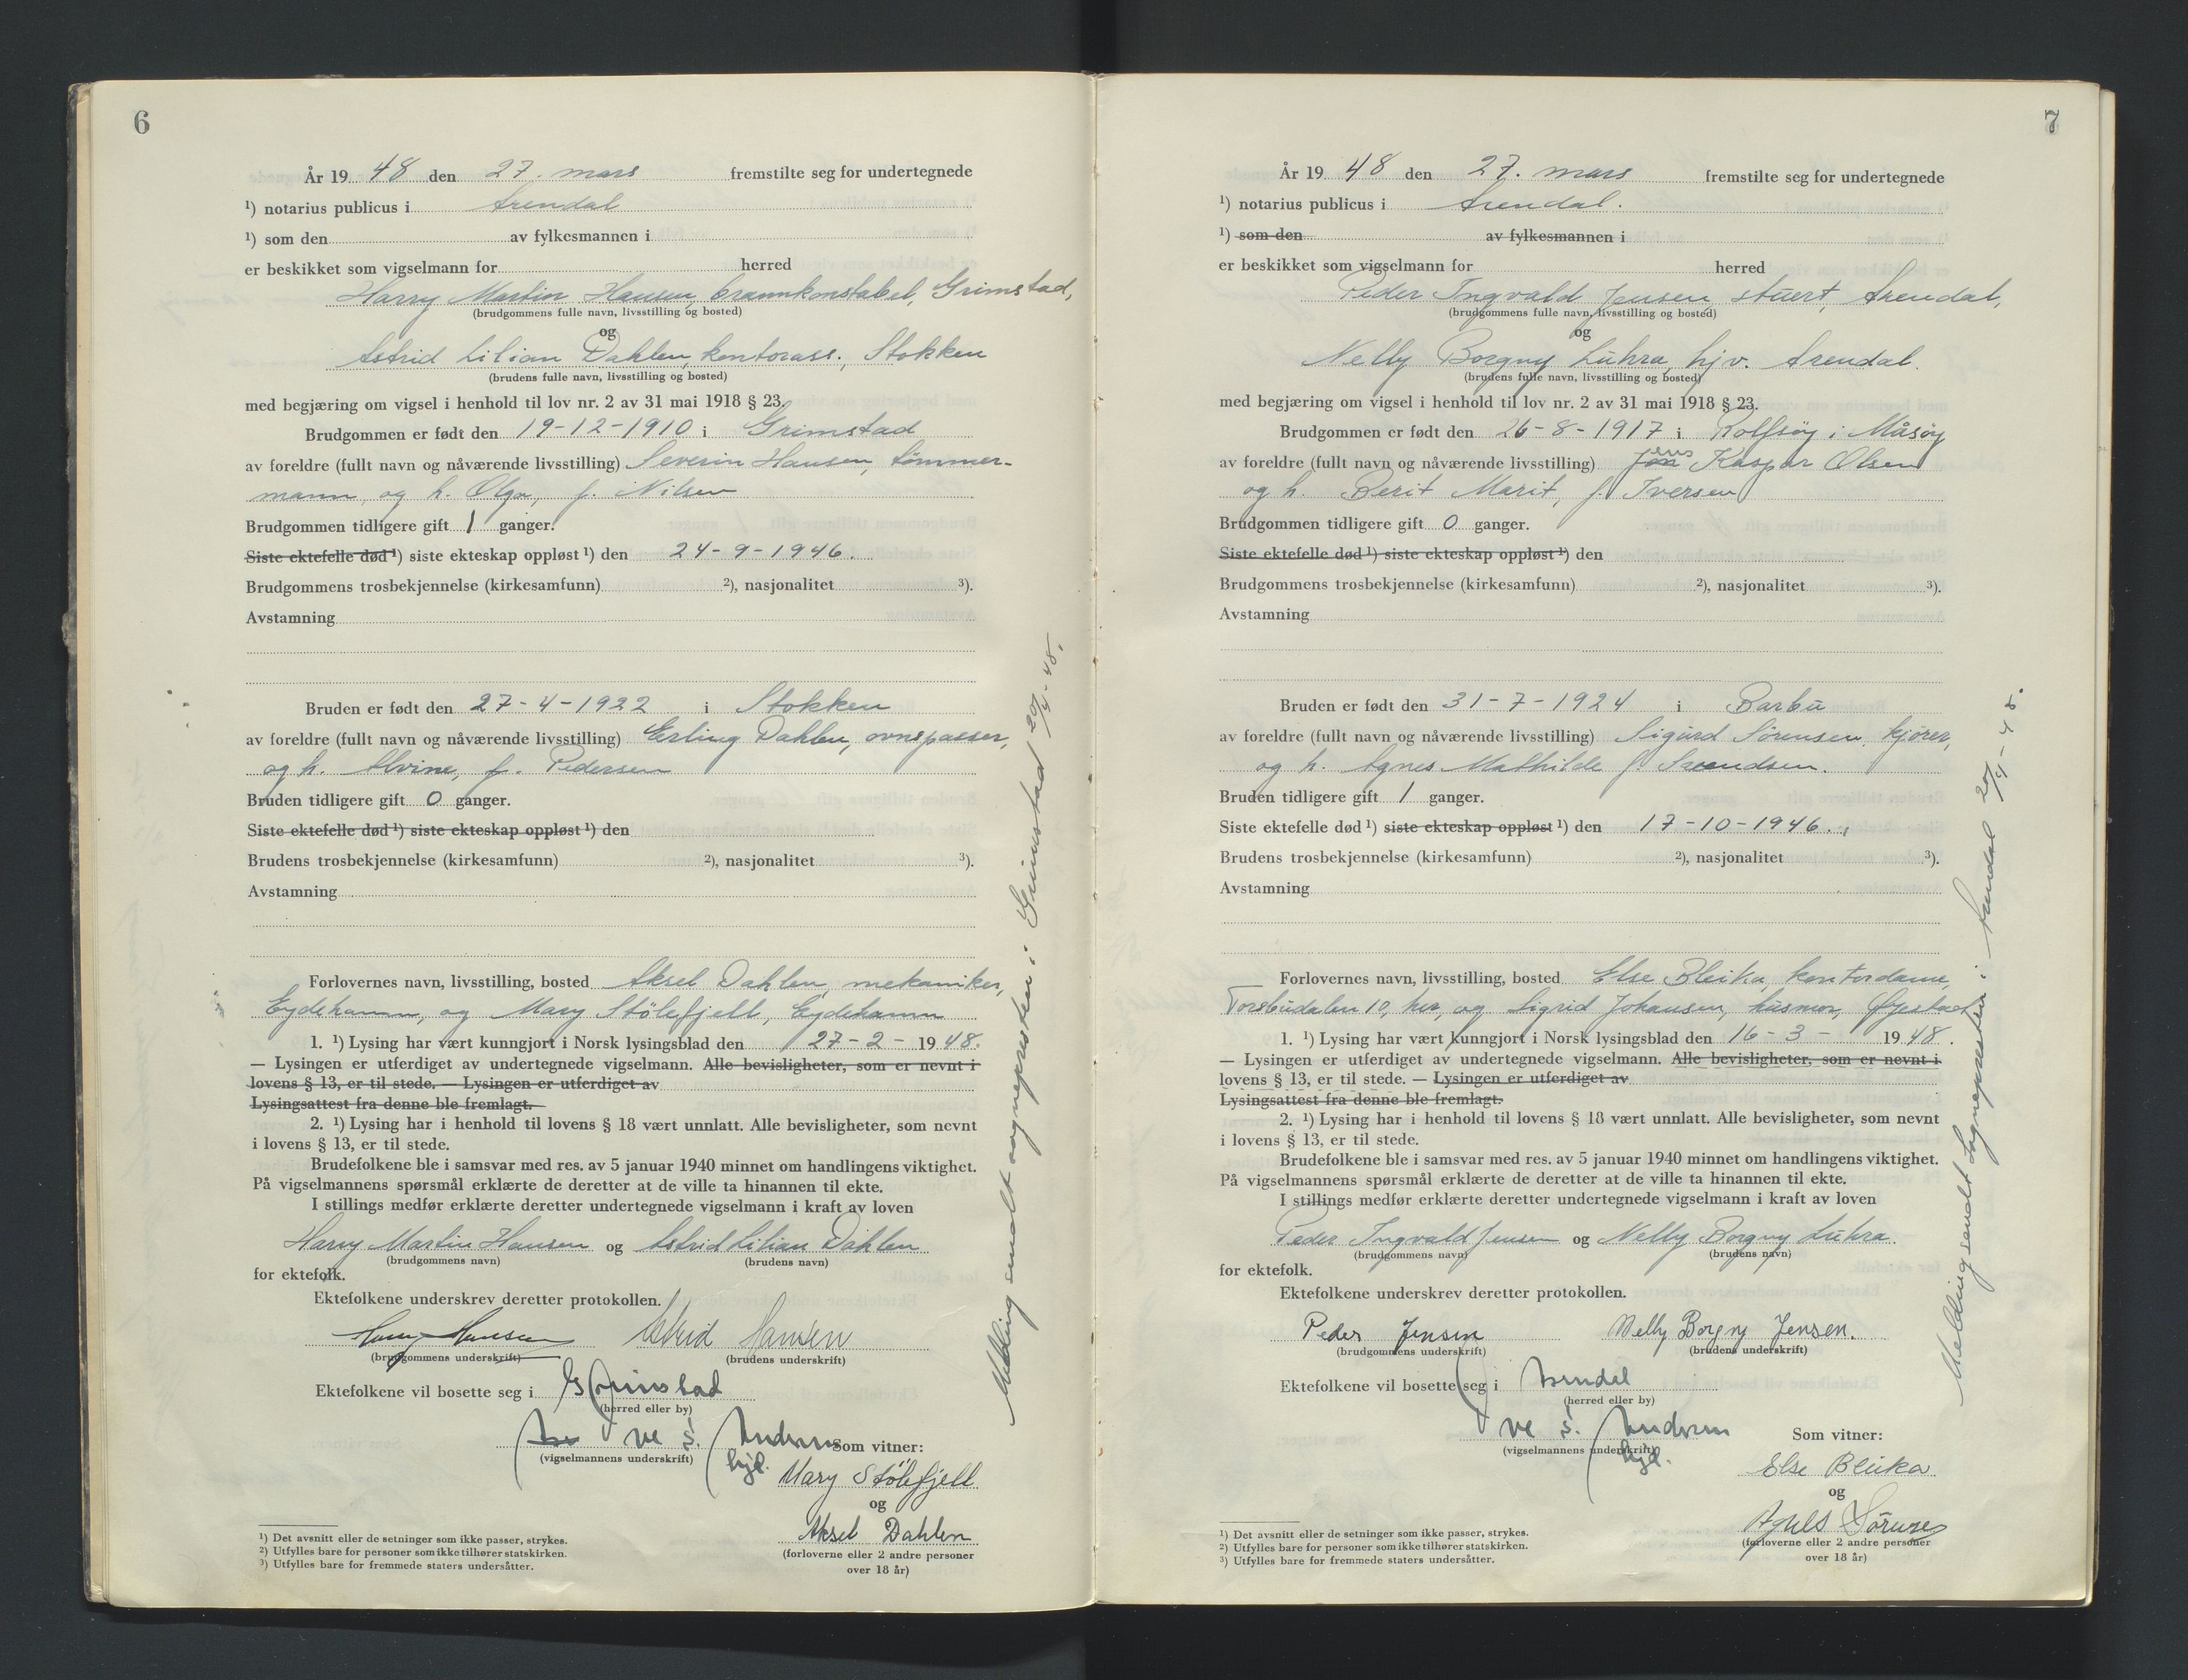 6
År 19 48 den 27. mars fremstilte seg for undertegnede
¹) notarius publicus i Arendal
¹) som den av fylkesmannen i
er beskikket som vigselmann for herred
Harry Martin Hansen, brannkonstabel, Grimstad,
(brudgommens fulle navn, livsstilling og bosted)
og
Astrid Lilian Dahlen, kontorass., Stokken
(brudens fulle navn, livsstilling og bosted)
med begjæring om vigsel i henhold til lov nr. 2 av 31 mai 1918 § 23.
Brudgommen er født den 19-12-1910 i Grimstad
av foreldre (fullt navn og nåværende livsstilling) Severin Hansen, tømmer-
mann, og h. Olga, f. Nilsen
Brudgommen tidligere gift 1 ganger.
Siste ektefelle død ¹) siste ekteskap oppløst ¹) den 24-9-1946.
Brudgommens trosbekjennelse (kirkesamfunn) ²), nasjonalitet ³).
Avstamning
Bruden er født den 27-4-1922 i Stokken
av foreldre (fullt navn og nåværende livsstilling) Erling Dahlen, ovnspasser,
og h. Alvine, f. Pedersen
Bruden tidligere gift 0 ganger.
Siste ektefelle død ¹) siste ekteskap oppløst ¹) den
Brudens trosbekjennelse (kirkesamfunn) ²), nasjonalitet ³).
Avstamning
Forlovernes navn, livsstilling, bosted Aksel Dahlen, mekaniker,
Eydehamn, og Mary Stølefjell, Eydehamn
1. ¹) Lysing har vært kunngjort i Norsk lysingsblad den 27-2- 19 48.
— Lysingen er utferdiget av undertegnede vigselmann. Alle bevisligheter, som er nevnt i
lovens § 13, er til stede. — Lysingen er utferdiget av
Lysingsattest fra denne ble fremlagt.
2. ¹) Lysing har i henhold til lovens § 18 vært unnlatt. Alle bevisligheter, som nevnt
i lovens § 13, er til stede.
Brudefolkene ble i samsvar med res. av 5 januar 1940 minnet om handlingens viktighet.
På vigselmannens spørsmål erklærte de deretter at de ville ta hinannen til ekte.
I stillings medfør erklærte deretter undertegnede vigselmann i kraft av loven
Harry Martin Hansen og Astrid Lilian Dahlen
(brudgommens navn) (brudens navn)
for ektefolk.
Ektefolkene underskrev deretter protokollen.
Harry Hansen Astrid Hansen
(brudgommens underskrift) (brudens underskrift)
Ektefolkene vil bosette seg i Grimstad
(herred eller by)
Andersen Som vitner:
(vigselmannens underskrift) hjd.
Mary Stølefjell
og
Aksel Dahlen
(forloverne eller 2 andre personer
over 18 år)
¹) Det avsnitt eller de setninger som ikke passer, strykes.
²) Utfylles bare for personer som ikke tilhører statskirken.
³) Utfylles bare for fremmede staters undersåtter.
Melding sendt sogneprestem i Grimstad 20/4-48.
7
År 19 48 den 27. mars fremstilte seg for undertegnede
¹) notarius publicus i Arendal.
¹) som den av fylkesmannen i
er beskikket som vigselmann for herred
Peder Ingvald Jensen, stuert, Arendal,
(brudgommens fulle navn, livsstilling og bosted)
og
Nelly Borgny Luhra, hjv. Arendal.
(brudens fulle navn, livsstilling og bosted)
med begjæring om vigsel i henhold til lov nr. 2 av 31 mai 1918 § 23.
Brudgommen er født den 26-8-1917 i Rolfsøy i Måsøy
av foreldre (fullt navn og nåværende livsstilling) Jens Kaspar Olsen
og h. Berit Marit, f. Iversen
Brudgommen tidligere gift 0 ganger.
Siste ektefelle død ¹) siste ekteskap oppløst ¹) den
Brudgommens trosbekjennelse (kirkesamfunn) ²), nasjonalitet ³).
Avstamning
Bruden er født den 31-7-1924 i Barbu
av foreldre (fullt navn og nåværende livsstilling) Sigurd Sørensen, kjører,
og h. Agnes Mathilde f. Svendsen.
Bruden tidligere gift 1 ganger.
Siste ektefelle død ¹) siste ekteskap oppløst ¹) den 17-10-1946.
Brudens trosbekjennelse (kirkesamfunn) ²), nasjonalitet ³).
Avstamning
Forlovernes navn, livsstilling, bosted Else Bleika, kontordame,
Torsbudalen 10, her, og Sigrid Johansen, husmor, Øyestad
1. ¹) Lysing har vært kunngjort i Norsk lysingsblad den 16-3- 19 48.
— Lysingen er utferdiget av undertegnede vigselmann. Alle bevisligheter, som er nevnt i
lovens § 13, er til stede. — Lysingen er utferdiget av
Lysingsattest fra denne ble fremlagt.
2. ¹) Lysing har i henhold til lovens § 18 vært unnlatt. Alle bevisligheter, som nevnt
i lovens § 13, er til stede.
Brudefolkene ble i samsvar med res. av 5 januar 1940 minnet om handlingens viktighet.
På vigselmannens spørsmål erklærte de deretter at de ville ta hinannen til ekte.
I stillings medfør erklærte deretter undertegnede vigselmann i kraft av loven
Peder Ingvald Jensen og Nelly Borgny Luhra.
(brudgommens navn) (brudens navn)
for ektefolk.
Ektefolkene underskrev deretter protokollen.
Peder Jensen Nelly Borgny Jensen.
(brudgommens underskrift) (brudens underskrift)
Ektefolkene vil bosette seg i Arendal
(herred eller by)
Andersen Som vitner:
(vigselmannens underskrift) hjd.
Else Bleika
og
Agnes Sørensen
(forloverne eller 2 andre personer
over 18 år)
¹) Det avsnitt eller de setninger som ikke passer, strykes.
²) Utfylles bare for personer som ikke tilhører statskirken.
³) Utfylles bare for fremmede staters undersåtter.
Melding sendt Sognepresten i Arendal 20/4-48